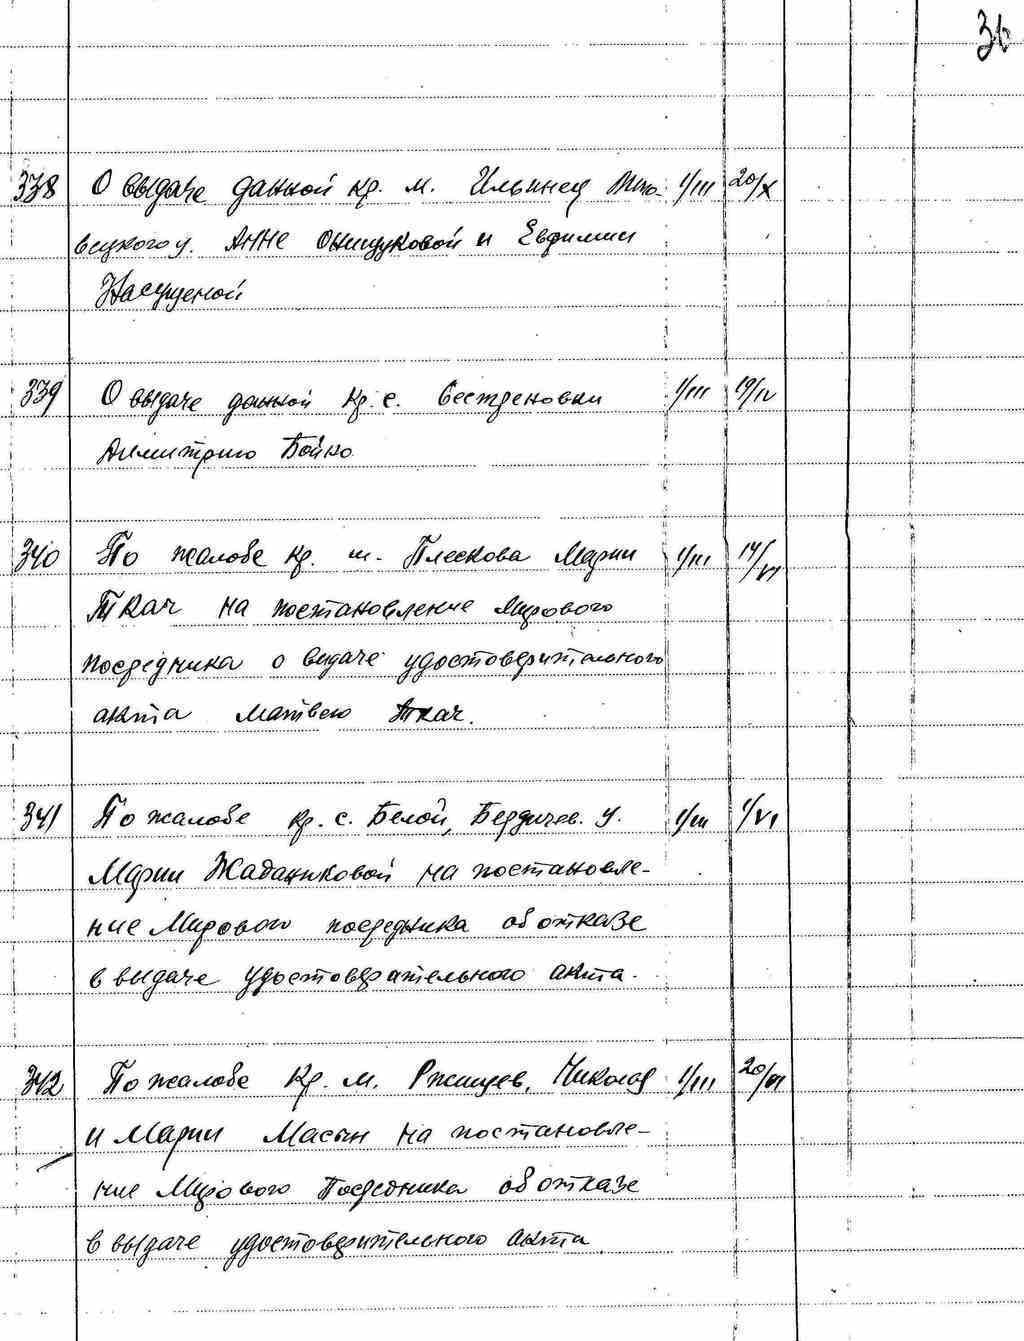 36
338 О выдаче данной кр. м. Ильинец Липо- 1/III 20/X
вецкого у. Анне Онищуковой и Евдимии
339 О выдаче данной кр. с. Сестреновки 1/III 19/IV
Димитрию Бойко
340 По жалобе кр. м. Плескова Марии 1/III 14/VI
Ткач на постановление Мирового
посредника о выдаче удостоверительного
акта Матвею Ткач.
341 По жалобе кр. с. Белой, Бердичев. у. 1/III 1/VI
Марии Жаданиковой на постановле-
ние Мирового посредника об отказе
в выдаче удостоверительного акта.
342 По жалобе кр. м. Ржищев, Николая 1/III 20/VI
и Марии Масын на постановле-
ние Мирового Посредника об отказе
в выдаче удостоверительного акта